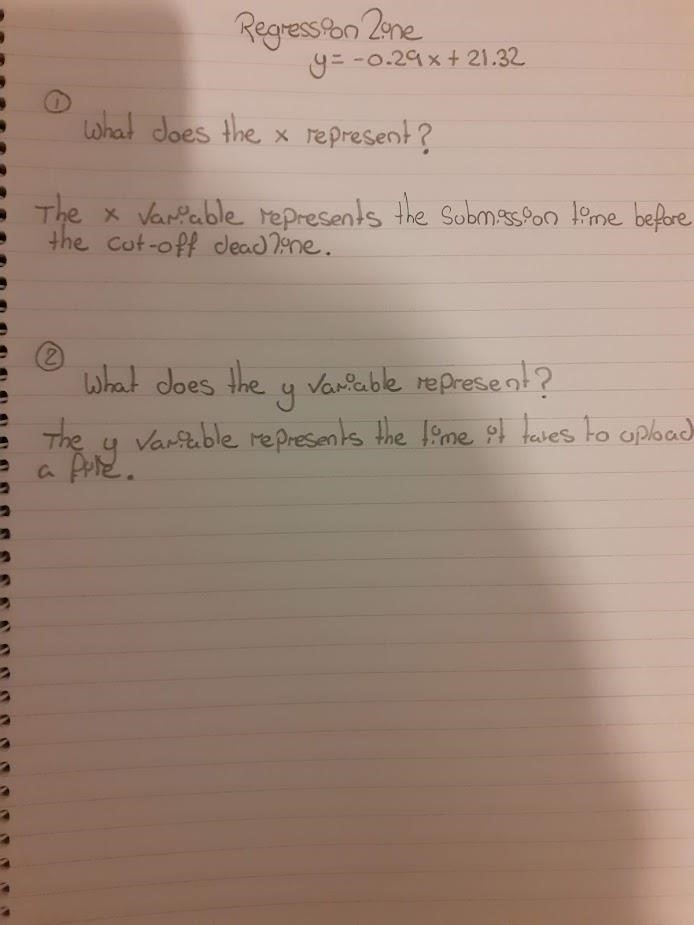 Regression Line
y = -0.29x + 21.32
①
What does the x represent?
The x variable represents the submission time before
the cut-off deadline.
②
What does the y variable represent?
The y variable represents the time it takes to upload
a file.